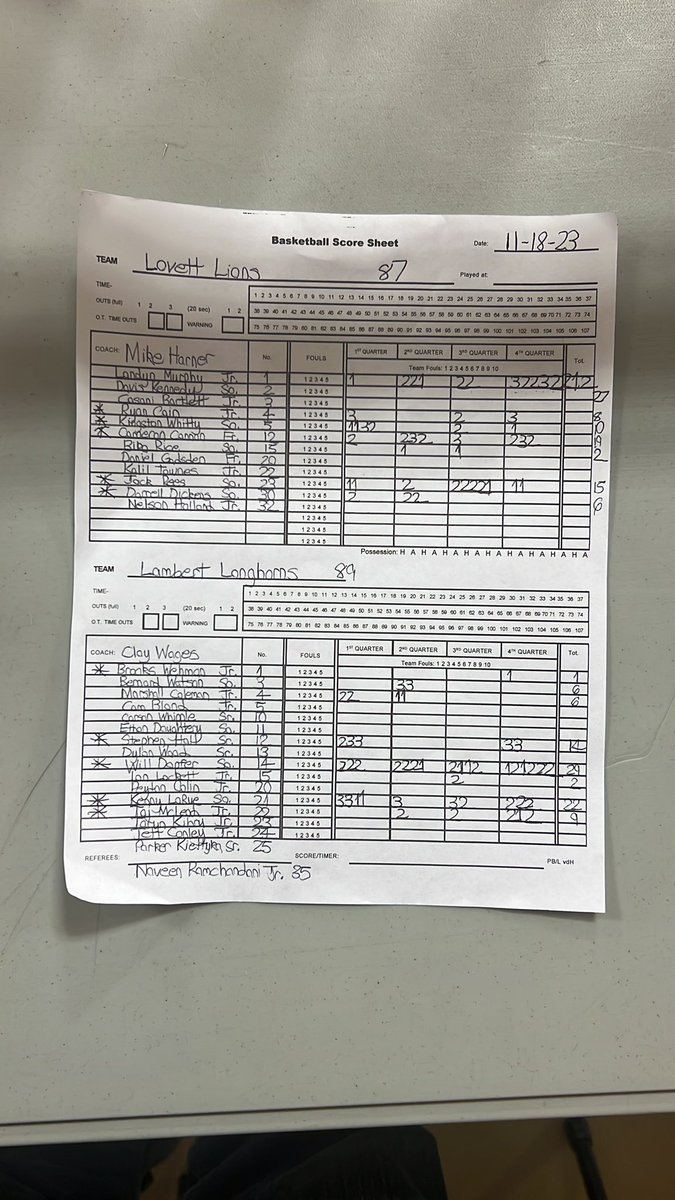 Basketball Score Sheet Date: 11-18-23
TEAM Lovett Lions 87 Played at:
TIME-
OUTS (full) 1 2 3 (20 sec) 1 2
O.T. TIME OUTS WARNING
1 2 3 4 5 6 7 8 9 10 11 12 13 14 15 16 17 18 19 20 21 22 23 24 25 26 27 28 29 30 31 32 33 34 35 36 37
38 39 40 41 42 43 44 45 46 47 48 49 50 51 52 53 54 55 56 57 58 59 60 61 62 63 64 65 66 67 68 69 70 71 72 73 74
75 76 77 78 79 80 81 82 83 84 85 86 87 88 89 90 91 92 93 94 95 96 97 98 99 100 101 102 103 104 105 106 107
COACH: Mike Harner No. FOULS 1ST QUARTER 2ND QUARTER 3RD QUARTER 4TH QUARTER Tot.
Team Fouls: 1 2 3 4 5 6 7 8 9 10
Landyn Murphy Jr. 1 1 2 3 4 5 1 221 22
Davis Kennedy So. 2 1 2 3 4 5 22
Bartlett Jr. 3 1 2 3 4 5
* Ryan Cain Jr. 4 1 2 3 4 5 3 2 3 8
* Kingston Whitty So. 5 1 2 3 4 5 1132 2 1 10
* Cameron Fr. 12 1 2 3 4 5 2 232 3 232 19
Rice So. 15 1 2 3 4 5 1 1 2
Daniel Gadsden Fr. 20 1 2 3 4 5
Kalil Townes Jr. 22 1 2 3 4 5
* Jack Rees So. 23 1 2 3 4 5 11 2 22221 11 15
* Darrell Dickens So. 30 1 2 3 4 5 2 22 6
Nelson Holland Jr. 32 1 2 3 4 5
1 2 3 4 5
1 2 3 4 5
Possession: H A H A H A H A H A H A H A H A H A H A H A H A
TEAM Lambert Longhorns 89
TIME-
OUTS (full) 1 2 3 (20 sec) 1 2
O.T. TIME OUTS WARNING
1 2 3 4 5 6 7 8 9 10 11 12 13 14 15 16 17 18 19 20 21 22 23 24 25 26 27 28 29 30 31 32 33 34 35 36 37
38 39 40 41 42 43 44 45 46 47 48 49 50 51 52 53 54 55 56 57 58 59 60 61 62 63 64 65 66 67 68 69 70 71 72 73 74
75 76 77 78 79 80 81 82 83 84 85 86 87 88 89 90 91 92 93 94 95 96 97 98 99 100 101 102 103 104 105 106 107
COACH: Clay Wages No. FOULS 1ST QUARTER 2ND QUARTER 3RD QUARTER 4TH QUARTER Tot.
Team Fouls: 1 2 3 4 5 6 7 8 9 10
* Brooks Wehman Jr. 1 1 2 3 4 5 1 1
Bernard Watson So. 3 1 2 3 4 5 33 6
Marshall Coleman Jr. 4 1 2 3 4 5 22 11 6
Cam Bland Jr. 5 1 2 3 4 5
Carson Whimple Sr. 10 1 2 3 4 5
Ethan Daughtery So. 11 1 2 3 4 5
* Stephen Hall Sr. 12 1 2 3 4 5 233 33 14
Dylan Wood Sr. 13 1 2 3 4 5
* Will Danter So. 14 1 2 3 4 5 222 2221 2112 121222 29
Ian Lockett Jr. 15 1 2 3 4 5 2 2
Peyton Colin Jr. 20 1 2 3 4 5
* Kenny LaRue So. 21 1 2 3 4 5 3311 3 32 222 22
* Tai McLeod Jr. 22 1 2 3 4 5 2 2 212 9
Jr. 23 1 2 3 4 5
Jett Conley Jr. 24 1 2 3 4 5
Parker Sr. 25
REFEREES: SCORE/TIMER: PB/L vdH
Naveen Ramchandani Jr. 35